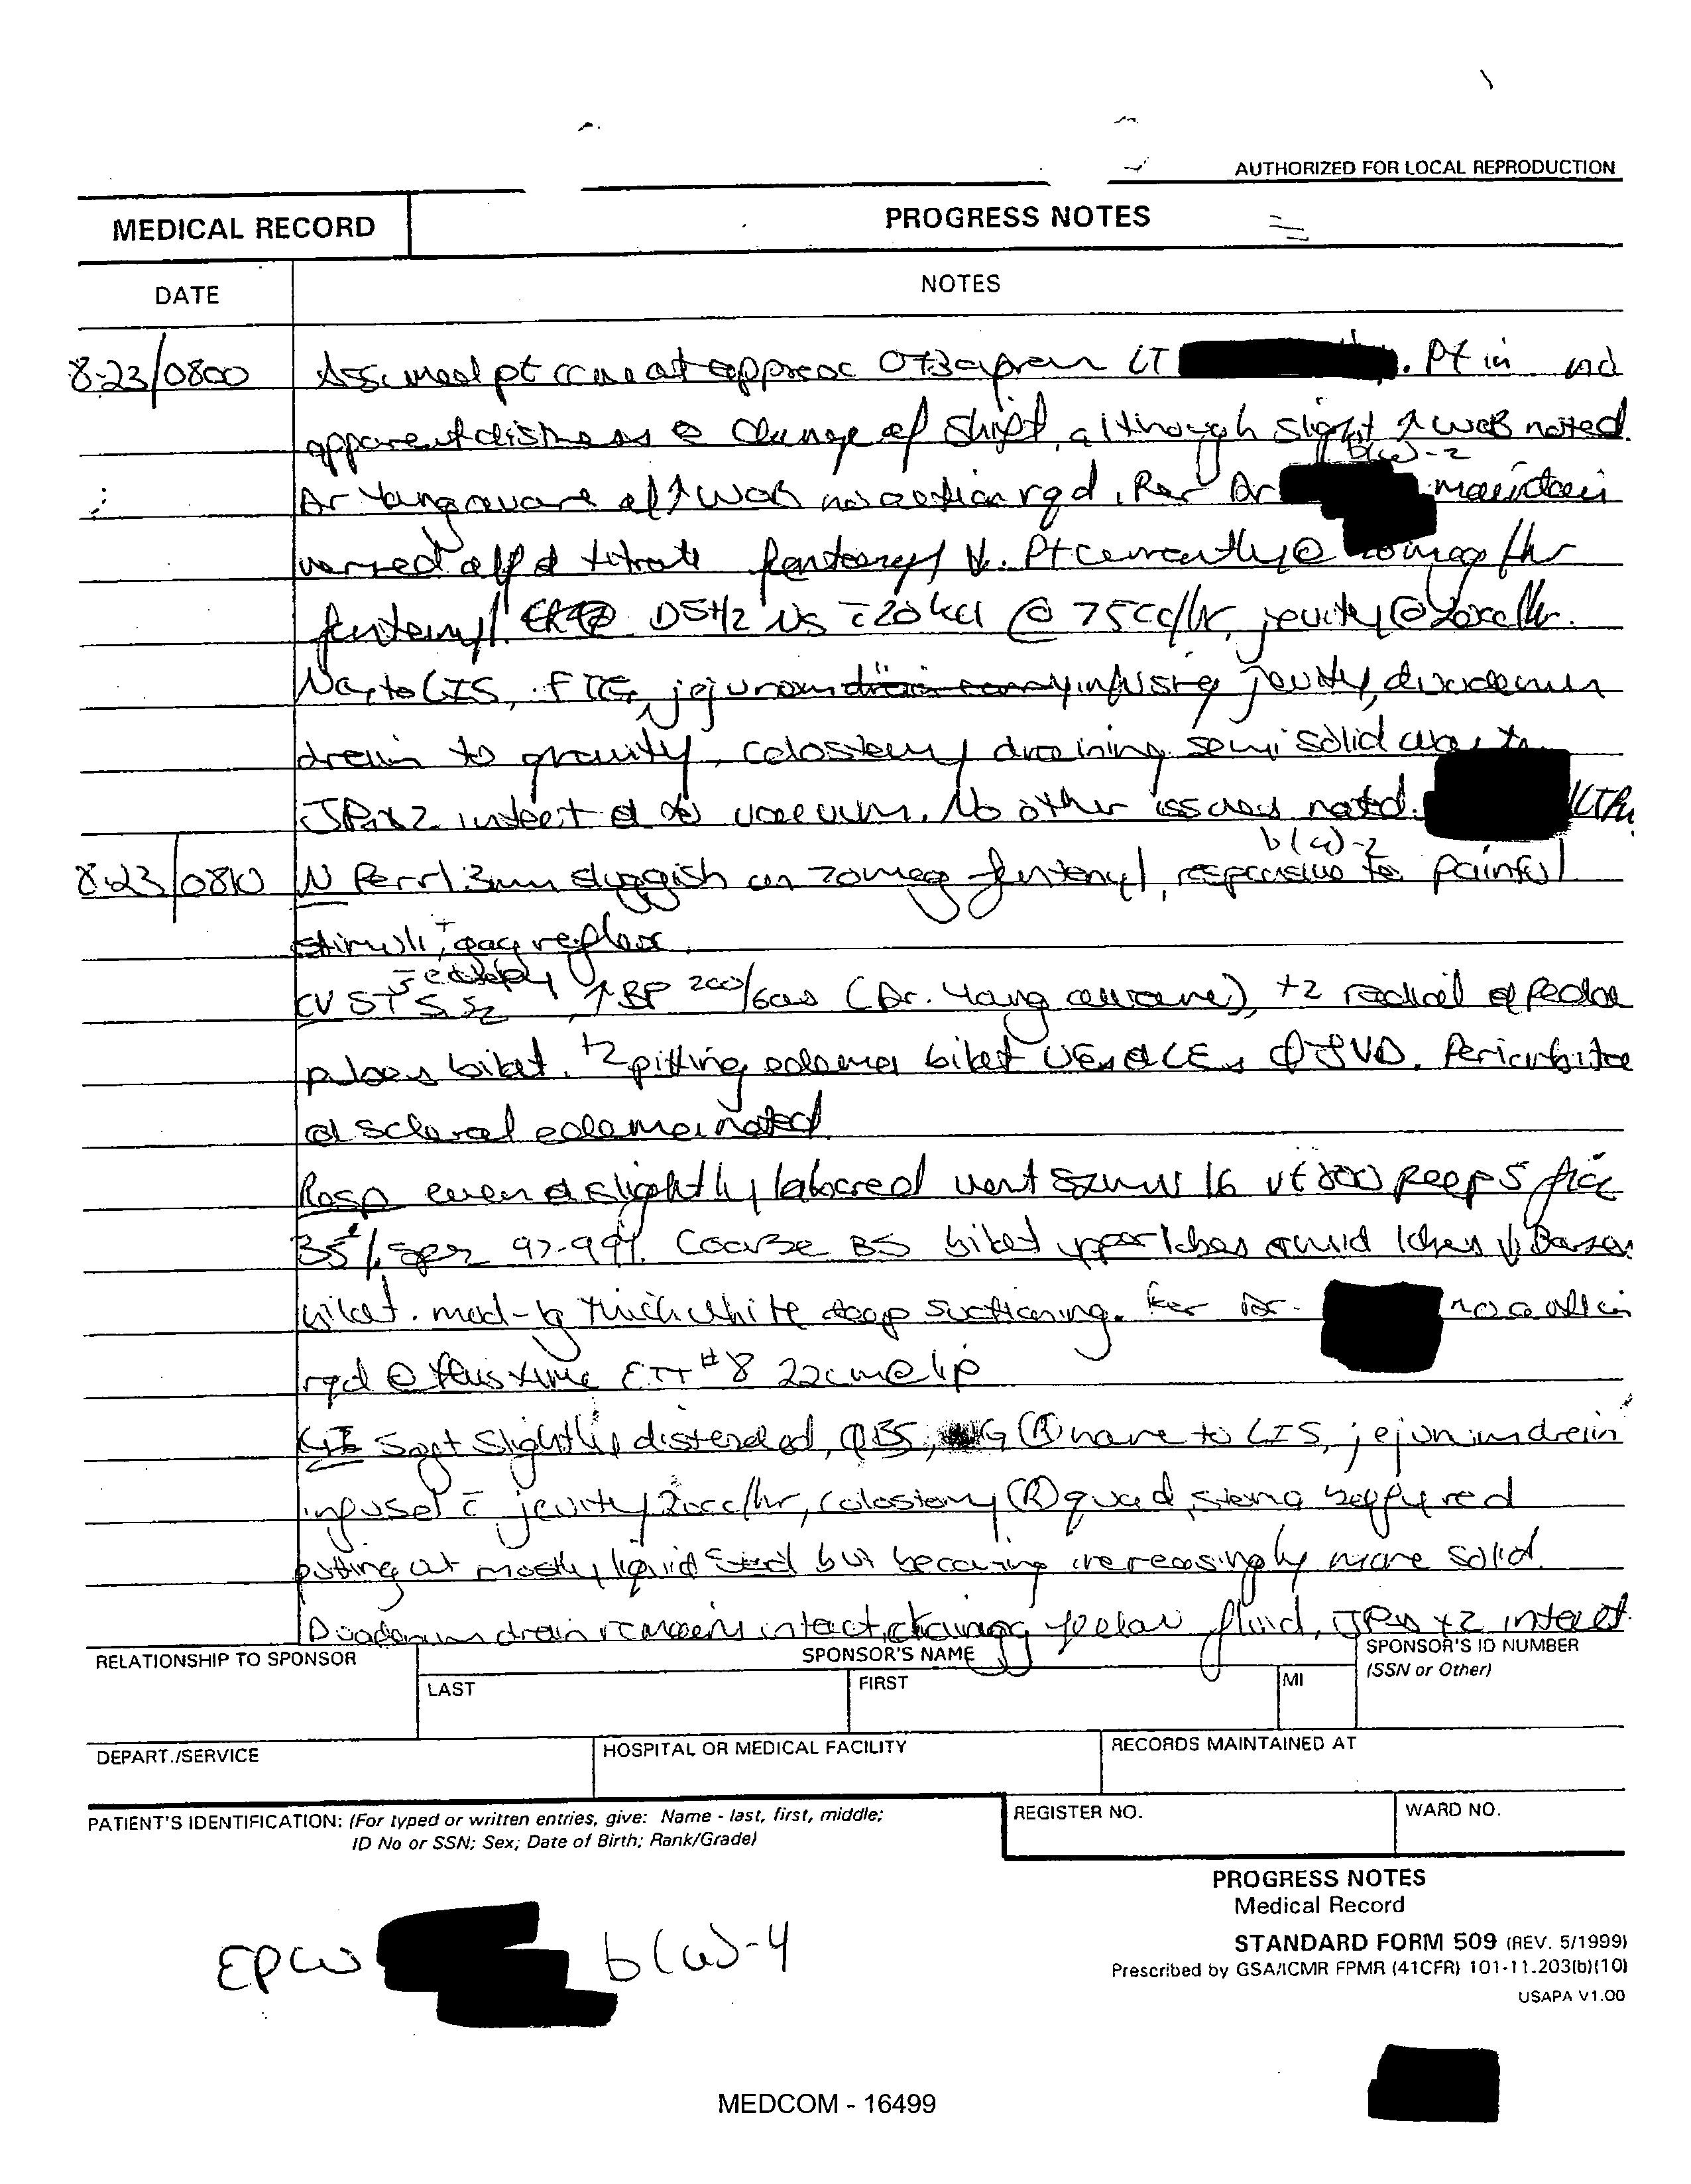 AUTHORIZED FOR LOCAL REPRODUCTION
MEDICAL RECORD
PROGRESS NOTES
DATE
NOTES
8-23/0800 Assumed pt care at approx 0730 from LT . Pt in no
apparent distress @ change of shift, although slight ↑ WOB noted.
b(6)-2
Dr Yang aware of ↑ WOB no action rqd. Per Dr maintain
versed off & titrate fentanyl ↓. Pt currently @ mcg/hr
fentanyl. D5 1/2 NS c̄ 20 kcl @ 75cc/hr, jevity @ 20cc/hr.
to LIS, jejunum infusing jevity, duodenum
drain to gravity, colostomy draining semi solid waste
JPs x2 intact & to vacuum. No other issues noted. LTRN
b(6)-2
8-23/0810 N Perrl 3mm sluggish on 70mcg fentanyl, responsive to painful
stimuli, + gag reflex.
CV ST S1S2 c̄ ectopy, ↑BP 200/60s (Dr. Yang aware), +2 radial & pedal
pulses bilat. +2 pitting edema bilat UEs & LEs ∅ JVD. Periorbital
& scleral edema noted.
Resp even & slightly labored vent SIMV 16 vt 800 peep 5 fio2
35% 97-99%. Coarse BS bilat upper lobes & mid lobes ↓ Bases
bilat. mod-lg thick white deep suctioning. Per Dr. no action
rqd @ this time ETT #8 22cm @ lip
GI Soft slightly distended, ∅BS, NG (R) nare to LIS, jejunum drain
infused c̄ jevity 20cc/hr, colostomy (R) quad, stoma red
putting out mostly liquid stool but becoming increasingly more solid.
Duodenum drain remains intact, draining yellow fluid, JPs x2 intact.
RELATIONSHIP TO SPONSOR
SPONSOR'S NAME
SPONSOR'S ID NUMBER
(SSN or Other)
LAST
FIRST
MI
DEPART./SERVICE
HOSPITAL OR MEDICAL FACILITY
RECORDS MAINTAINED AT
PATIENT'S IDENTIFICATION: (For typed or written entries, give: Name - last, first, middle;
ID No or SSN; Sex; Date of Birth; Rank/Grade)
REGISTER NO.
WARD NO.
PROGRESS NOTES
Medical Record
STANDARD FORM 509 (REV. 5/1999)
Prescribed by GSA/ICMR FPMR (41CFR) 101-11.203(b)(10)
USAPA V1.00
EPW b(6)-4
MEDCOM - 16499